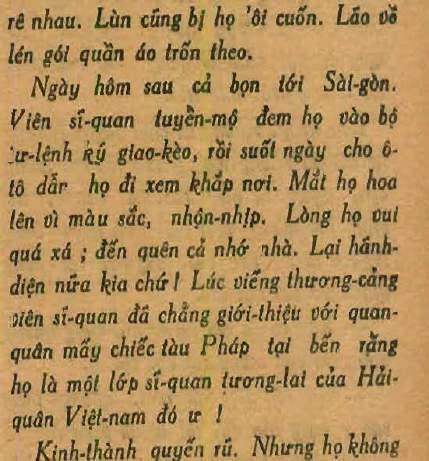 rê nhau. Lùn cũng bị họ 'ôi cuốn. Lão vồ
lén gói quần áo trốn theo.
Ngày hôm sau cả bọn tới Sài-gòn.
Viên sĩ-quan tuyền-mộ đem họ vào bộ
ư-lệnh ký giao-kèo, rồi suốt ngày cho ô-
tô dắr họ đi xem khắp nơi. Mắt họ hoa
lên vì màu sắc, nhộn-nhịp. Lòng họ vui
quá xá ; đến quên cả nhớ nhà. Lại hãnh-
diện nữa kia chứ ! Lúc viếng thương-cảng
viên sĩ-quan đã chẳng giới-thiệu với quan-
quân mấy chiếc tàu Pháp tại bến rằng
họ là một lớp sĩ-quan tương-lai của Hải-
quân Việt-nam đó ư !
Kinh-thành quyến rũ. Nhưng họ không